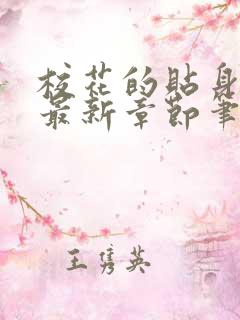 校花的贴身
最新章节笔
王隽英